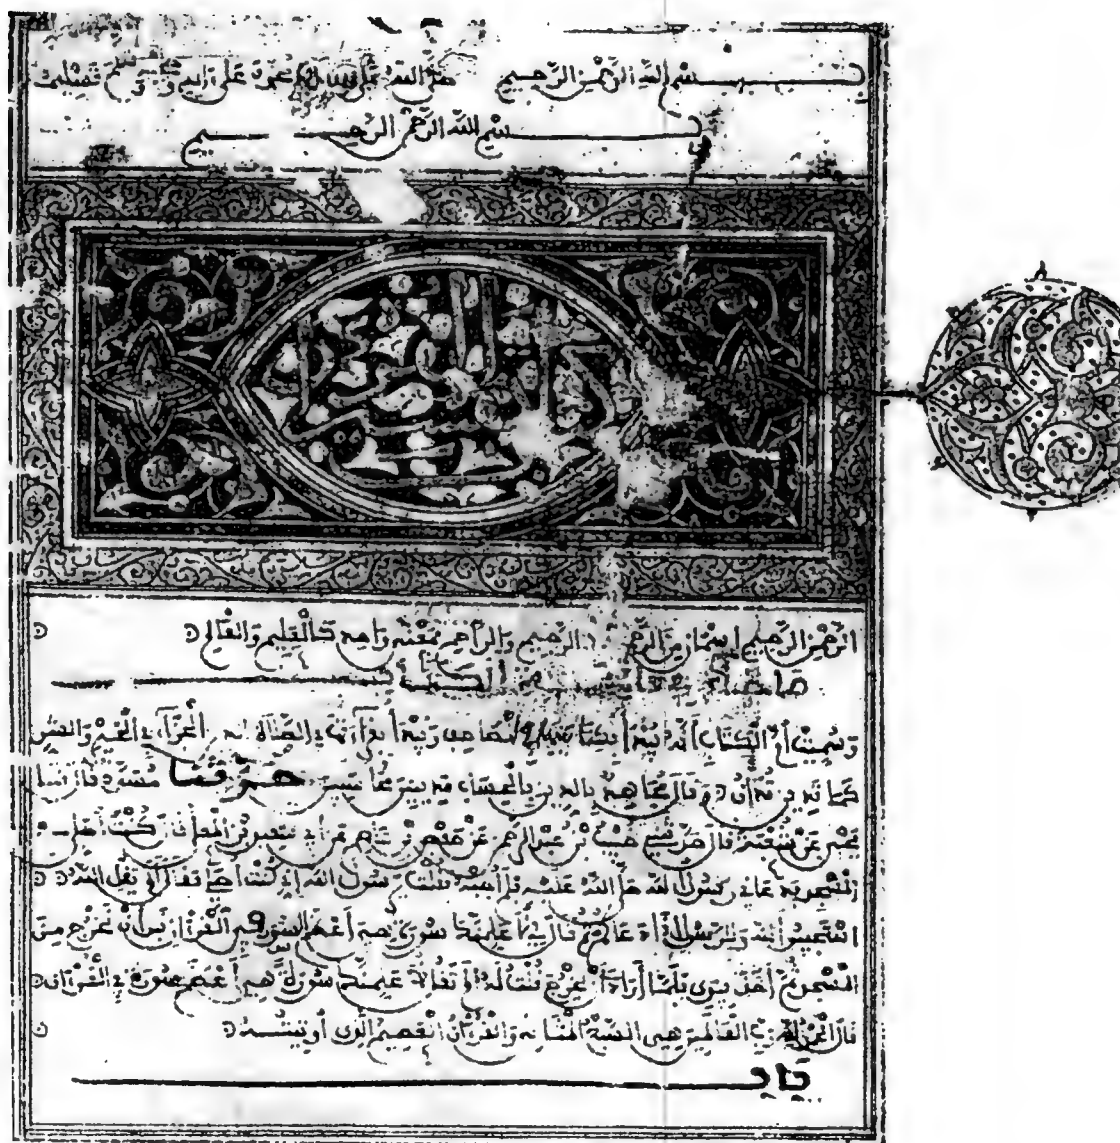 بسم الله الرحمن الرحيم صلى الله على محمد وعلى آله وسلم تسليما
بسم الله الرحمن الرحيم
كتاب تفسير
الرحمن الرحيم اسمان من الرحمة الرحيم والراحم بمعنى واحد كالعليم والعالم
باب ما جاء في فاتحة الكتاب
وسميت أم الكتاب أنه يبدأ بكتابتها في المصاحف ويبدأ بقراءتها في الصلاة الدين الجزاء في الخير والشر
كما تدين تدان وقال مجاهد بالدين بالحساب مدينين محاسبين حدثنا مسدد قال نا
يحيى عن شعبة قال حدثني خبيب بن عبد الرحمن عن حفص بن عاصم عن أبي سعيد بن المعلى قال كنت أصلي
في المسجد فدعاني رسول الله صلى الله عليه فلم أجبه فقلت يا رسول الله إني كنت أصلي فقال ألم يقل الله
استجيبوا لله وللرسول إذا دعاكم ثم قال لي لأعلمنك سورة هي أعظم السور في القرآن قبل أن تخرج من
المسجد ثم أخذ بيدي فلما أراد أن يخرج قلت له ألم تقل لأعلمنك سورة هي أعظم سورة في القرآن
قال الحمد لله رب العالمين هي السبع المثاني والقرآن العظيم الذي أوتيته
باب